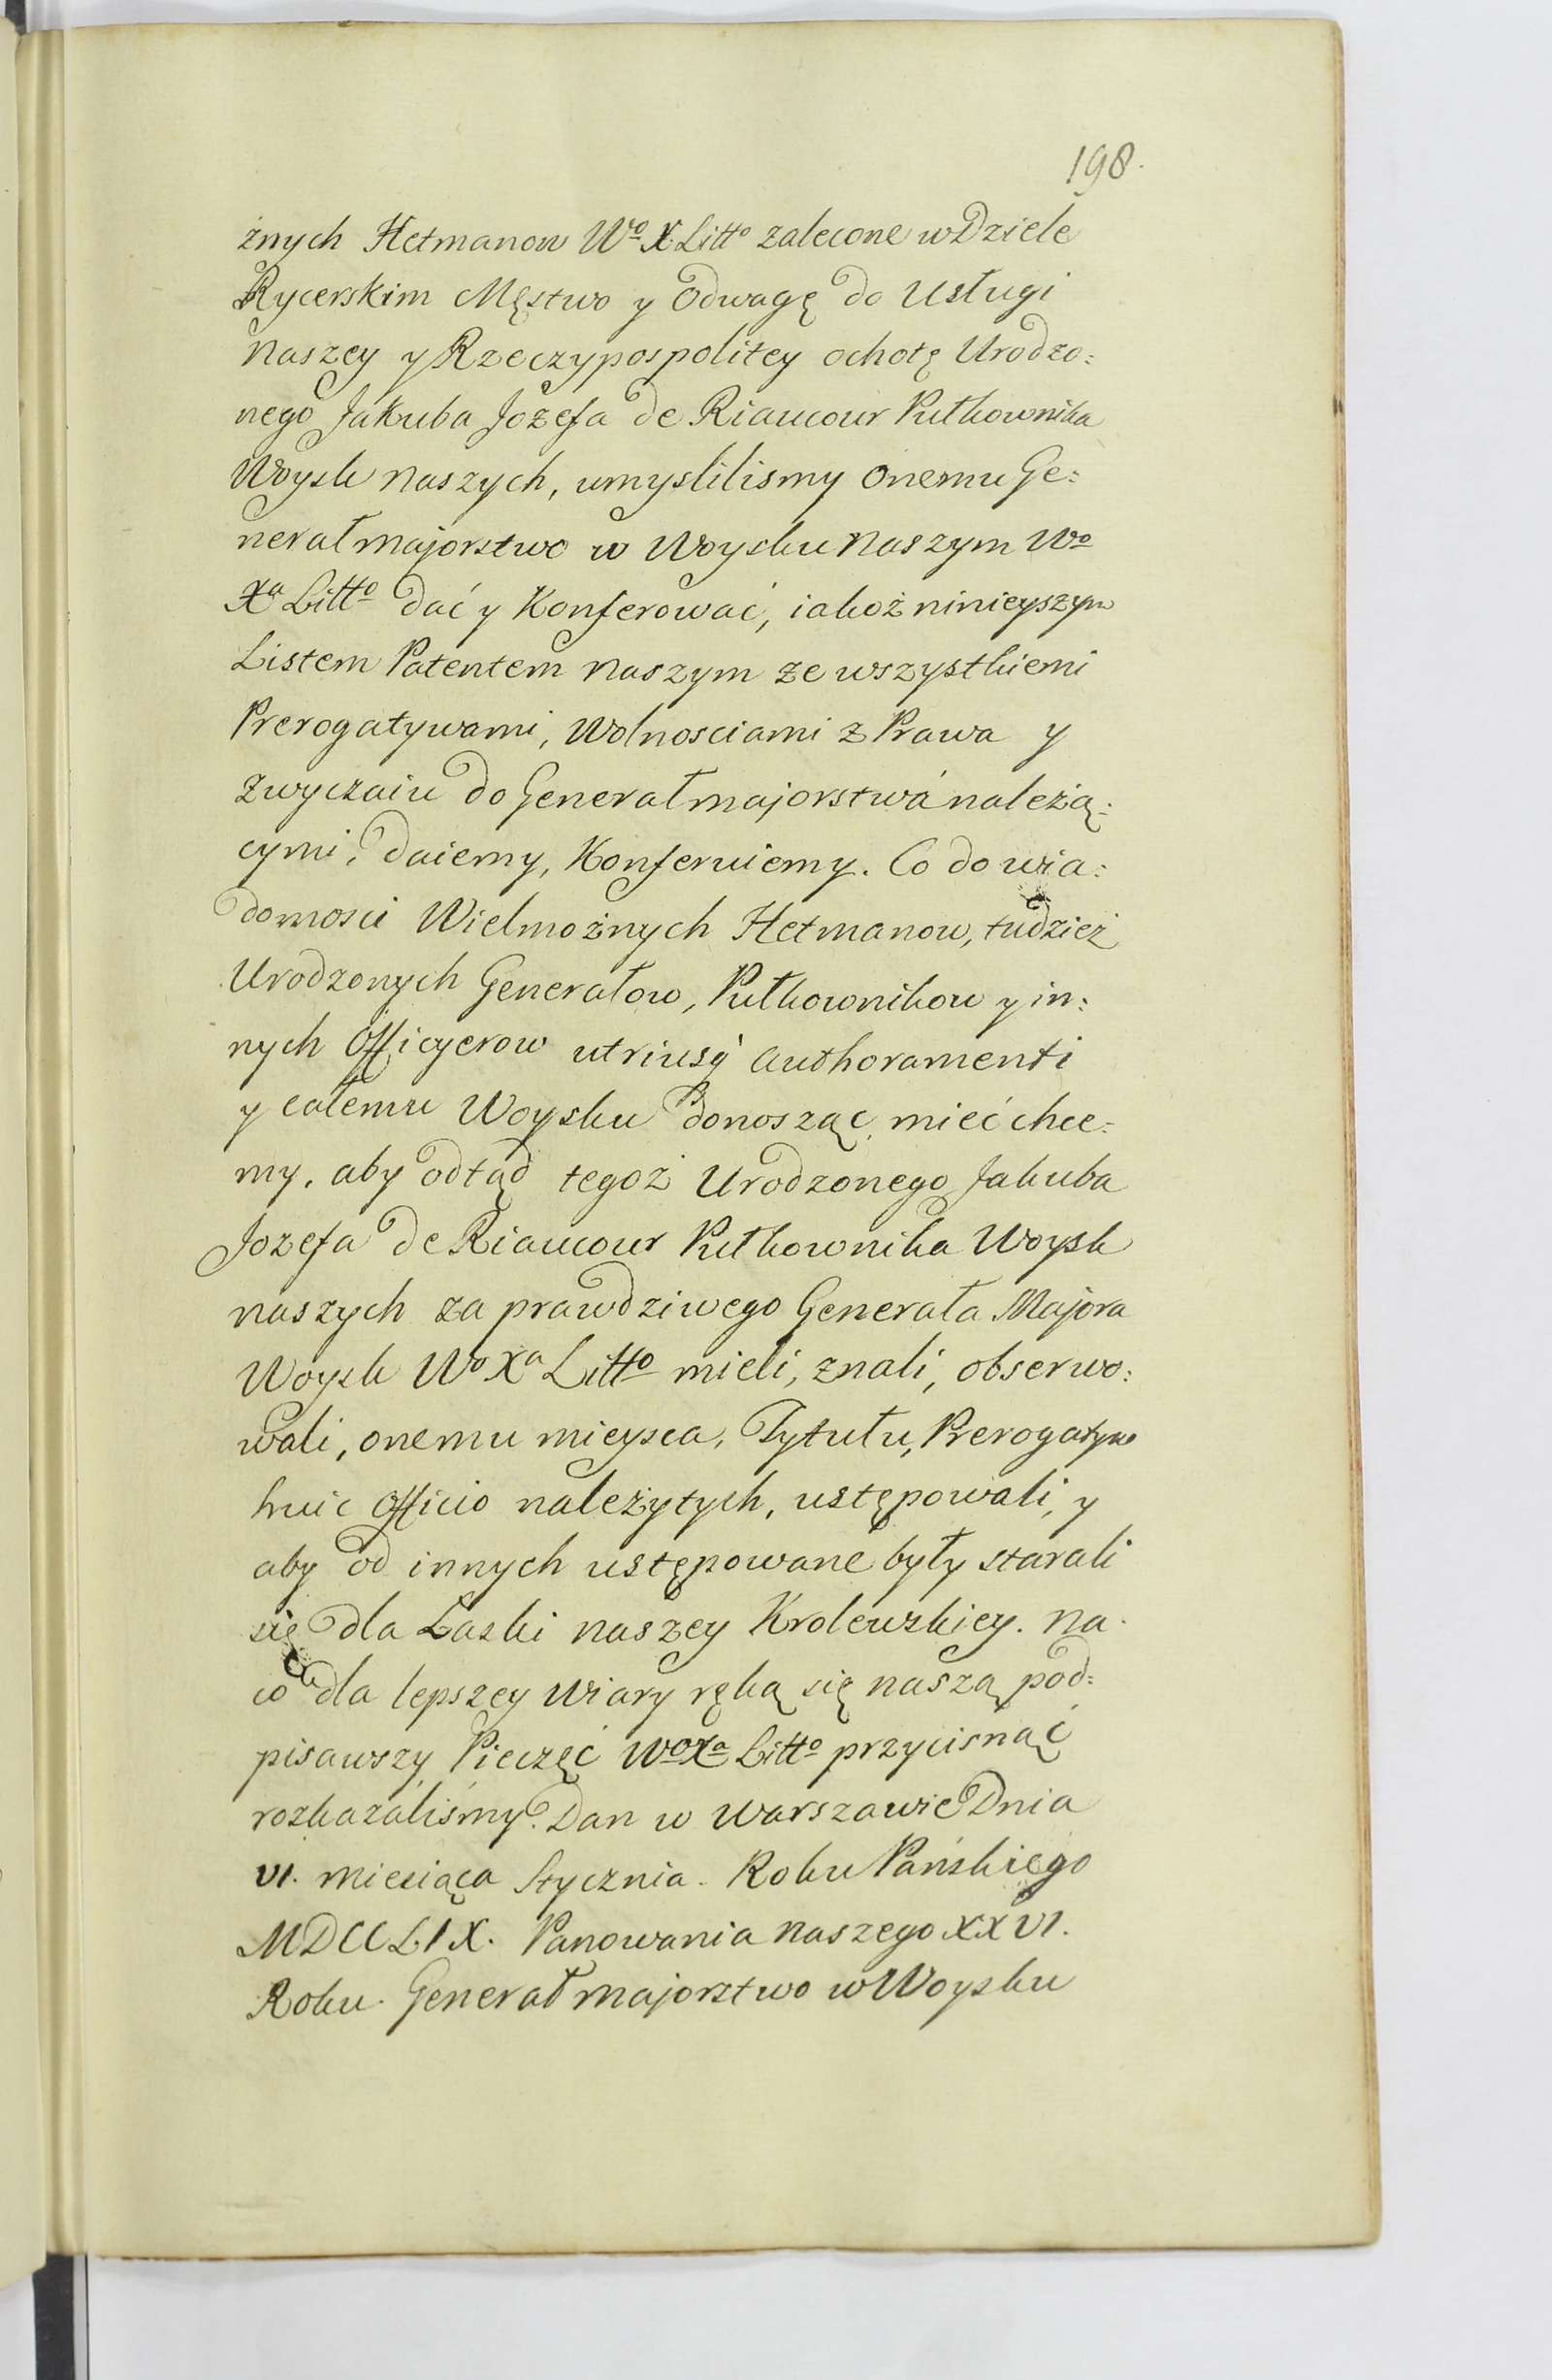 198.
żnych Hetmanow Wº X Littº zalecone w Dziele
Rycerskim Męstwo y Odwagę do Usługi
Naszey y Rzeczypospolitey ochotę Urodzo:
nego Jakuba Jozefa de Riaucour Pułkownika
Woysk Naszych, umyslilismy onemu Ge:
nerałmajorstwo w Woysku Naszym Wº
Xª Littº dać y Konferować, iakoż ninieyszym
Listem Patentem Naszym ze wszystkiemi
Prerogatywami, Wolnosciami z Prawa y
Zwyczaiu do Generałmajorstwa należą:
cymi, daiemy, Konferuiemy. Co do wia:
domosci Wielmożnych Hetmanow, tudzież
Urodzonych Generałow, Pułkownikow y in:
nych Officyerow utriusq́ Authoramenti
y całemu Woysku donosząc, mieć chce:
my, aby odtąd tegoż Urodzonego Jakuba
Jozefa de Riaucour Pułkownika Woysk
naszych za prawdziwego Generała Majora
Woysk Wº Xª Littº mieli, znali, obserwo:
wali, onemu mieysca, Tytułu, Prerogatyw
huic Officio należytych, ustępowali, y
aby od innych ustępowane były starali
się dla Łaski naszey Krolewskiey. Na
co dla lepszey Wiary ręką się naszą pod:
pisawszy, Pieczęć Wº Xª Littº przycisnąć
rozkazaliśmy. Dan w Warszawie Dnia
VI. Miesiąca Stycznia. Roku Pańskiego
MDCCLIX. Panowania Naszego XXVI.
Roku. Generał majorstwo w Woysku